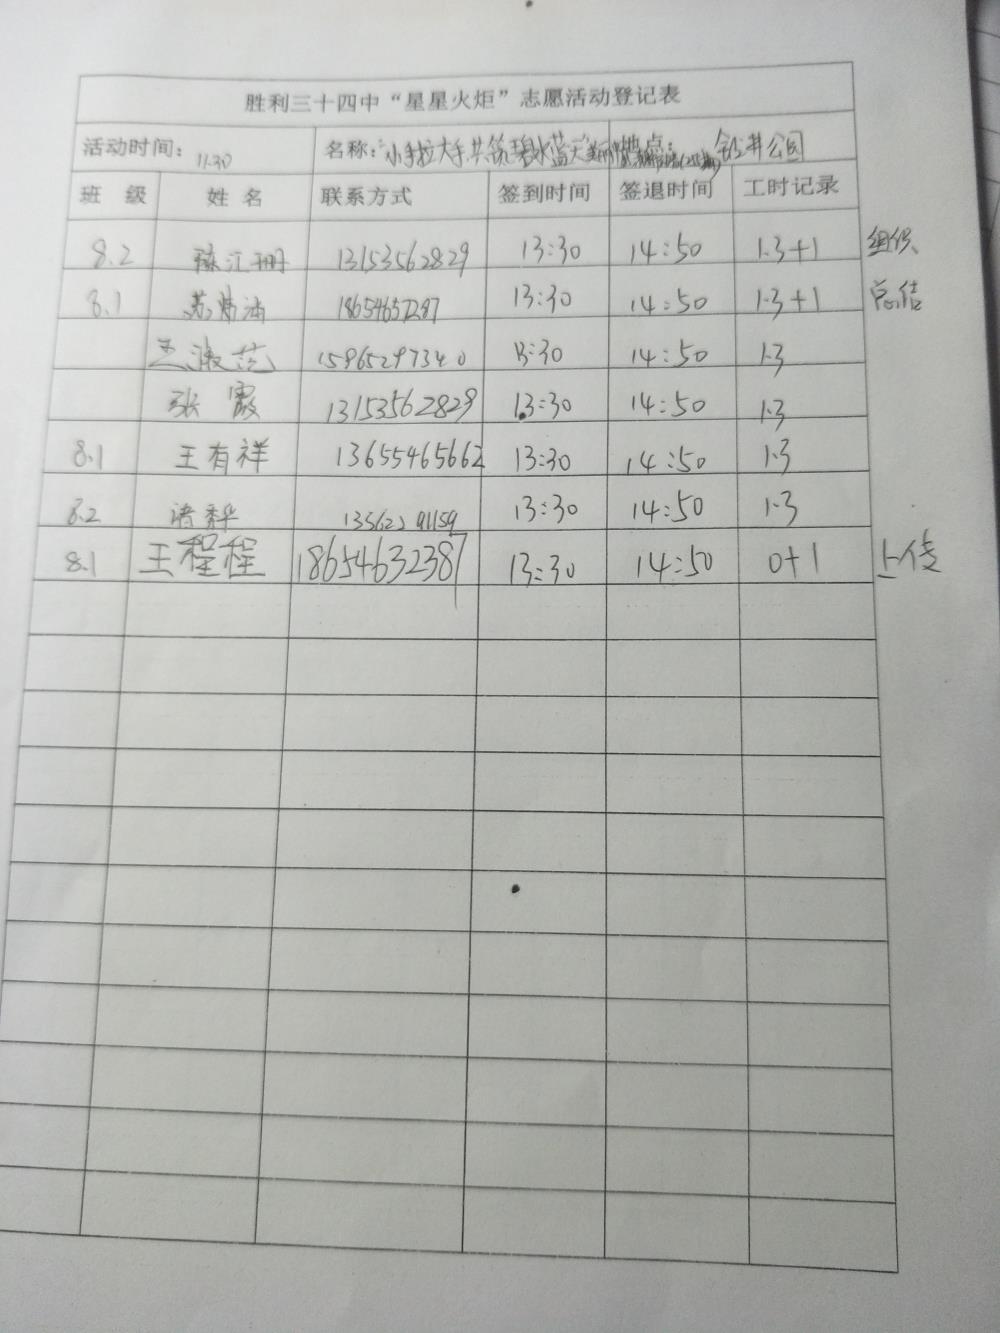 胜利三十四中“星星火炬”志愿活动登记表
活动时间: 11.30 名称:“小手拉大手,共筑碧水蓝天 地点: 公园
班 级 姓 名 联系方式 签到时间 签退时间 工时记录
8.2 13153562829 13:30 14:50 1.3+1 组织
8.1 18654657287 13:30 14:50 1.3+1 总结
王淑范 15965297340 13:30 14:50 1.3
张霞 13153562829 13:30 14:50 1.3
8.1 王有祥 13655465662 13:30 14:50 1.3
8.2 13:30 14:50 1.3
8.1 王程程 18654632387 13:30 14:50 0+1 上传